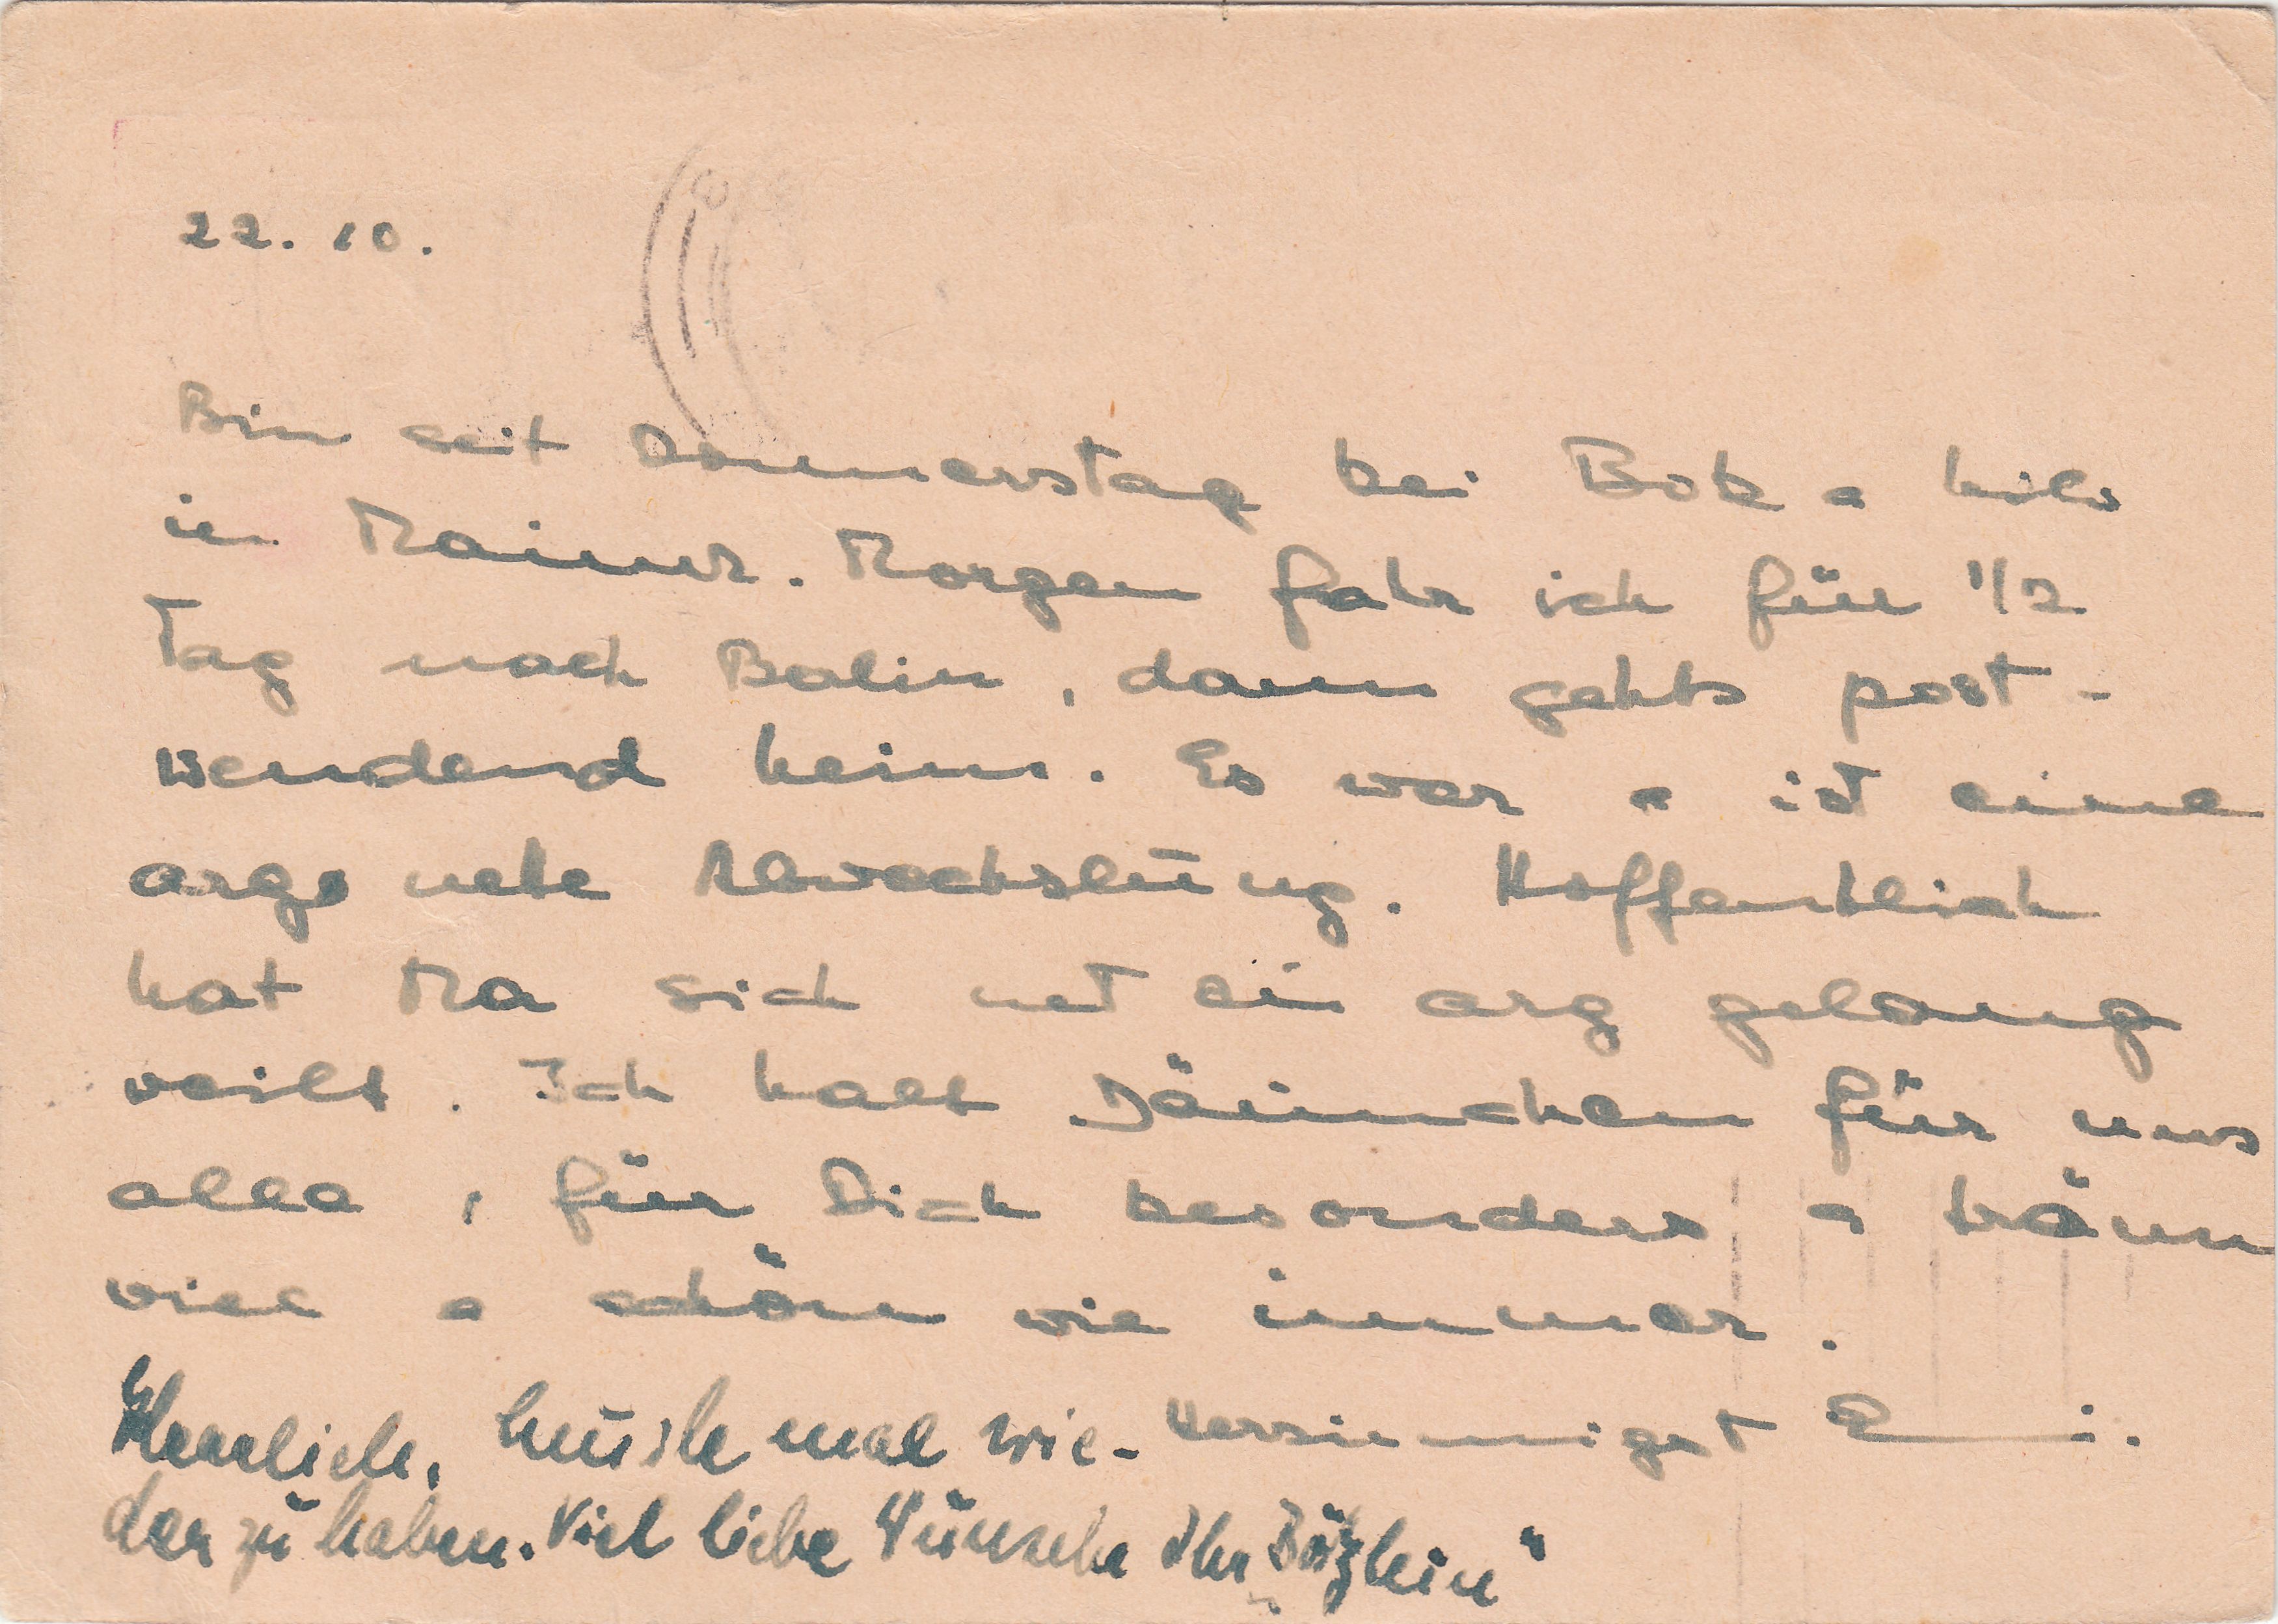 22. 10.
Bin seit Donnerstag bei Bob
in Morgen fahr ich für 1/2
Tag nach Berlin, dann gehts post-
wendend heim. Es war u ist eine
arge nette Abwechslung. Hoffentlich
hat Ma sich net arg gelang
weilt. Ich halt Däumchen für uns
alle, für Dich besonders u träum
viel u schön wie immer.
Herzinnigst
Herrlich, mal wie-
der zu haben. Viel liebe Wünsche Ihr